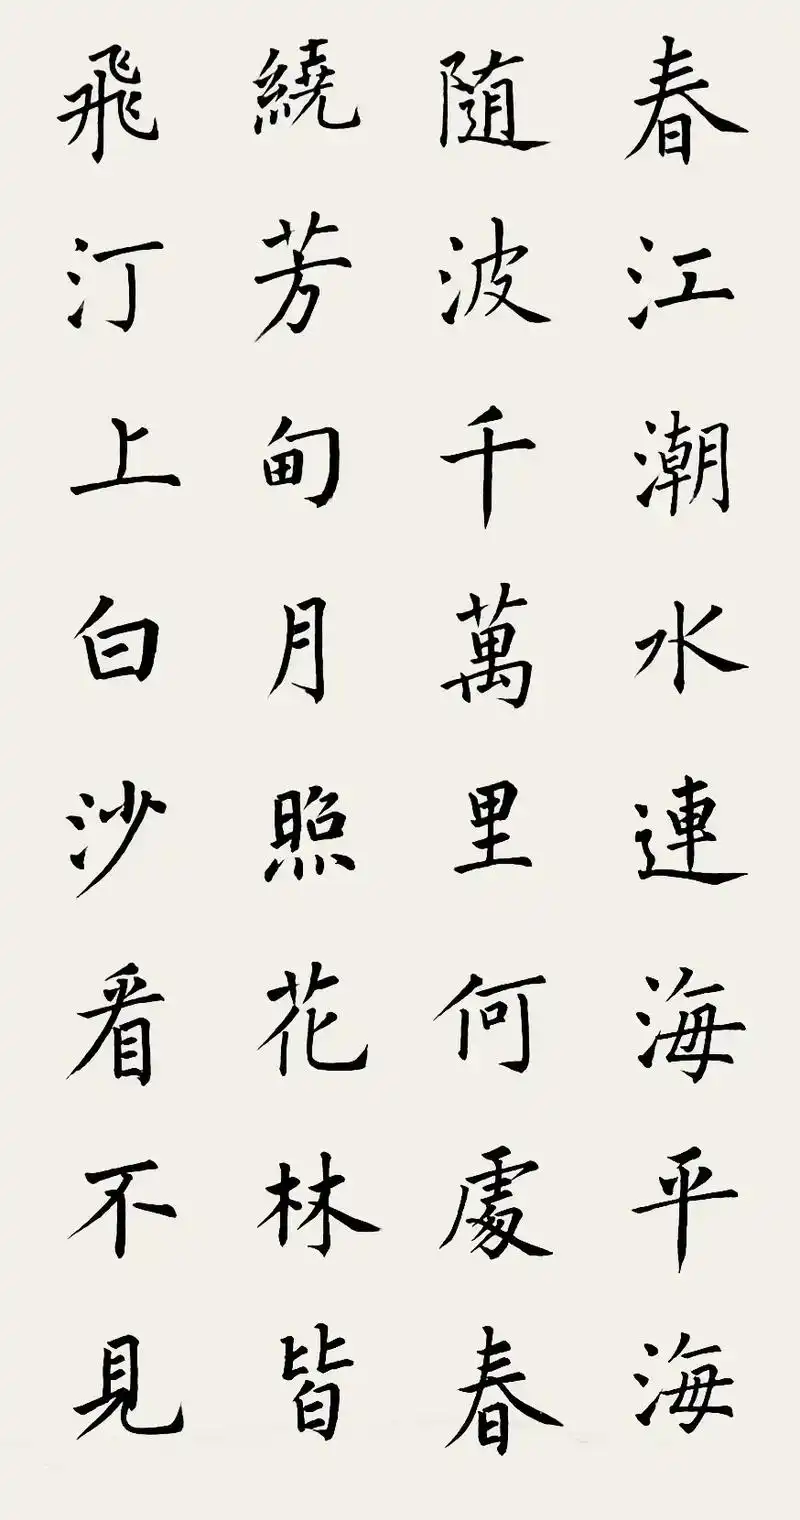 春江潮水連海平海
随波千萬里何處春
繞芳甸月照花林皆
飛汀上白沙看不見